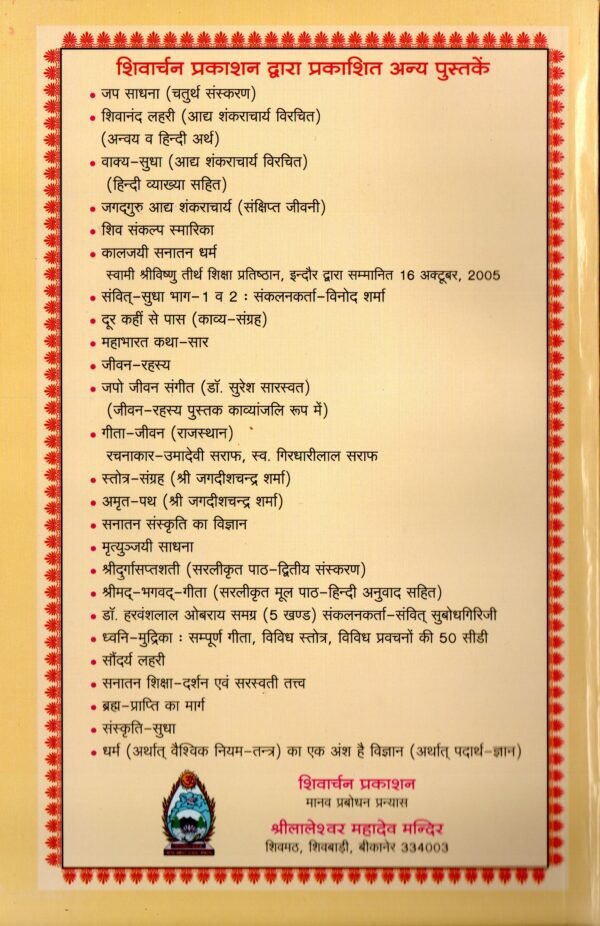 शिवार्चन प्रकाशन द्वारा प्रकाशित अन्य पुस्तकें
• जप साधना (चतुर्थ संस्करण)
• शिवानंद लहरी (आद्य शंकराचार्य विरचित)
(अन्वय व हिन्दी अर्थ)
• वाक्य-सुधा (आद्य शंकराचार्य विरचित)
(हिन्दी व्याख्या सहित)
• जगद्गुरु आद्य शंकराचार्य (संक्षिप्त जीवनी)
• शिव संकल्प स्मारिका
• कालजयी सनातन धर्म
स्वामी श्रीविष्णु तीर्थ शिक्षा प्रतिष्ठान, इन्दौर द्वारा सम्मानित 16 अक्टूबर, 2005
• संवित्-सुधा भाग-1 व 2 : संकलनकर्ता-विनोद शर्मा
• दूर कहीं से पास (काव्य-संग्रह)
• महाभारत कथा-सार
• जीवन-रहस्य
• जपो जीवन संगीत (डॉ. सुरेश सारस्वत)
(जीवन-रहस्य पुस्तक काव्यांजलि रूप में)
• गीता-जीवन (राजस्थान)
रचनाकार-उमादेवी सराफ, स्व. गिरधारीलाल सराफ
• स्तोत्र-संग्रह (श्री जगदीशचन्द्र शर्मा)
• अमृत-पथ (श्री जगदीशचन्द्र शर्मा)
• सनातन संस्कृति का विज्ञान
• मृत्युञ्जयी साधना
• श्रीदुर्गासप्तशती (सरलीकृत पाठ-द्वितीय संस्करण)
• श्रीमद्-भगवद्-गीता (सरलीकृत मूल पाठ-हिन्दी अनुवाद सहित)
• डॉ. हरवंशलाल ओबराय समग्र (5 खण्ड) संकलनकर्ता-संवित् सुबोधगिरिजी
• ध्वनि-मुद्रिका : सम्पूर्ण गीता, विविध स्तोत्र, विविध प्रवचनों की 50 सीडी
• सौंदर्य लहरी
• सनातन शिक्षा-दर्शन एवं सरस्वती तत्त्व
• ब्रह्म-प्राप्ति का मार्ग
• संस्कृति-सुधा
• धर्म (अर्थात् वैश्विक नियम-तन्त्र) का एक अंश है विज्ञान (अर्थात् पदार्थ-ज्ञान)
शिवार्चन प्रकाशन
मानव प्रबोधन प्रन्यास
श्रीलालेश्वर महादेव मन्दिर
शिवमठ, शिवबाड़ी, बीकानेर 334003